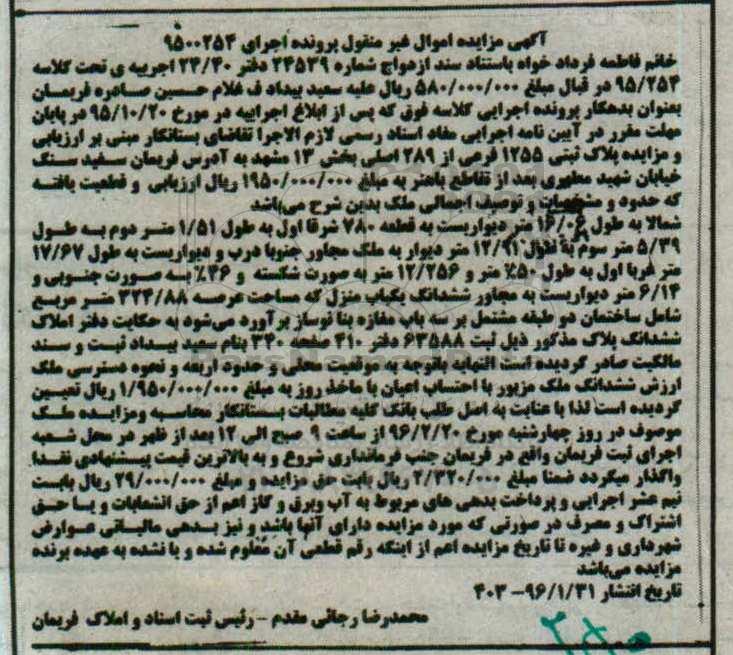 آگهی مزایده اموال غیر منقول پرونده اجرای ۹۵۰۰۲۵۴
خانم فاطمه فرداد خواه باستناد سند ازدواج شماره ۲۴۵۳۹ دفتر ۲۴/۴۰ اجرییه ی تحت کلاسه
۹۵/۲۵۴ در قبال مبلغ ۵۸۰/۰۰۰/۰۰۰ ریال علیه سعید بیداد ف غلام حسین صادره فریمان
بعنوان بدهکار پرونده اجرایی کلاسه فوق که پس از ابلاغ اجراییه در مورخ ۹۵/۱۰/۲۰ در پایان
مهلت مقرر در آیین نامه اجرایی مفاد اسناد رسمی لازم الاجرا تقاضای بستانکار مبنی بر ارزیابی
و مزایده پلاک ثبتی ۱۲۵۵ فرعی از ۲۸۹ اصلی بخش ۱۳ مشهد به آدرس فریمان سفید سنگ
خیابان شهید مطهری بعد از تقاطع باهنر به مبلغ ۱۹۵۰/۰۰۰/۰۰۰ ریال ارزیابی و قطعیت یافته
که حدود و مشخصات و توصیف اجمالی ملک بدین شرح می‌باشد
شمالا به طول ۱۶/۰۶ متر دیواریست به قطعه ۷۸۰ شرقا اول به طول ۱/۵۱ متر دوم به طول
۵/۳۹ متر سوم به طول ۱۲/۹۱ متر دیوار به ملک مجاور جنوبا درب و دیواریست به طول ۱۷/۶۷
متر غربا اول به طول ۵۰٪ متر و ۱۲/۲۵۶ متر به صورت شکسته و ۴۶٪ به صورت جنوبی و
۶/۱۴ متر دیواریست به مجاور ششدانگ یکباب منزل که مساحت عرصه ۳۲۴/۸۸ متر مربع
شامل ساختمان دو طبقه مشتمل بر سه باب مغازه بنا نوساز برآورد می‌شود به حکایت دفتر املاک
ششدانگ پلاک مذکور ذیل ثبت ۶۳۵۸۸ دفتر ۴۱۰ صفحه ۳۴۰ بنام سعید بیداد ثبت و سند
مالکیت صادر گردیده است النهایه باتوجه به موقعیت محلی و حدود اربعه و نحوه دسترسی ملک
ارزش ششدانگ ملک مزبور با احتساب اعیان با ماخذ روز به مبلغ ۱/۹۵۰/۰۰۰/۰۰۰ ریال تعیین
گردیده است لذا با عنایت به اصل طلب بانک کلیه مطالبات بستانکار محاسبه ومزایده ملک
موصوف در روز چهارشنبه مورخ ۹۶/۲/۲۰ از ساعت ۹ صبح الی ۱۲ بعد از ظهر در محل شعبه
اجرای ثبت فریمان واقع در فریمان جنب فرمانداری شروع و به بالاترین قیمت پیشنهادی نقدا
واگذار میگردد ضمنا مبلغ ۲/۳۲۰/۰۰۰ ریال بابت حق مزایده و مبلغ ۲۹/۰۰۰/۰۰۰ ریال بابت
نیم عشر اجرایی و پرداخت بدهی های مربوط به آب وبرق و گاز اعم از حق انشعابات و یا حق
اشتراک و مصرف در صورتی که مورد مزایده دارای آنها باشد و نیز بدهی مالیاتی عوارض
شهرداری و غیره تا تاریخ مزایده اعم از اینکه رقم قطعی آن معلوم شده و یا نشده به عهده برنده
مزایده می‌باشد
تاریخ انتشار ۹۶/۱/۳۱-۴۰۳
محمدرضا رجائی مقدم - رئیس ثبت اسناد و املاک فریمان